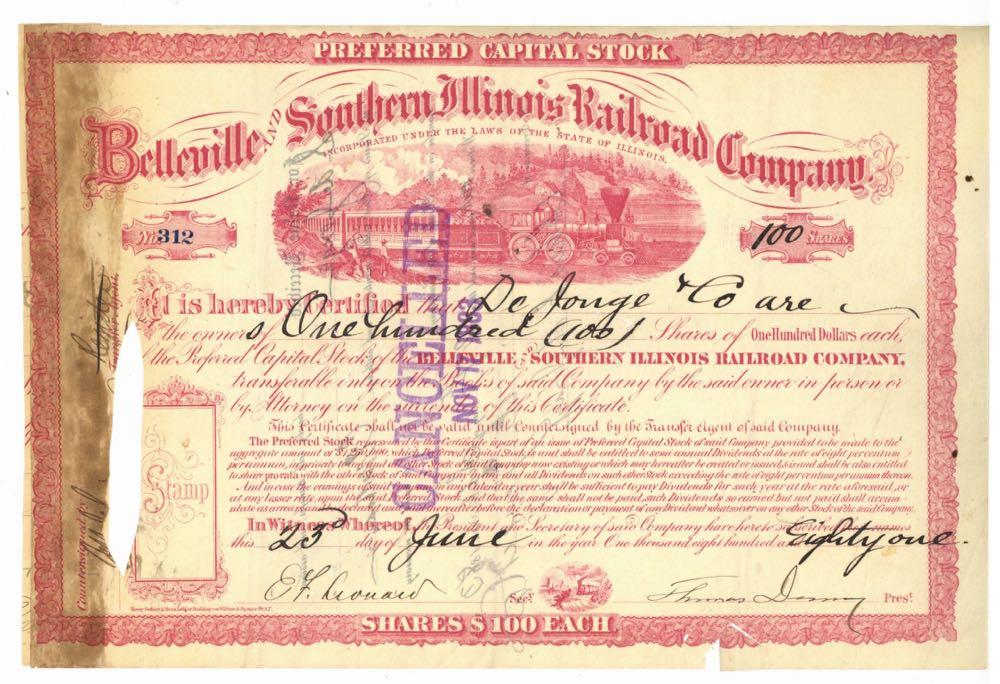 PREFERRED CAPITAL STOCK
Belleville AND Southern Illinois Railroad Company.
INCORPORATED UNDER THE LAWS OF THE STATE OF ILLINOIS.
No. 312
100 SHARES
It is hereby certified that De Jonge & Co are
the owners One hundred (100) Shares of One Hundred Dollars each,
the Preferred Capital Stock of the BELLEVILLE and SOUTHERN ILLINOIS RAILROAD COMPANY,
transferable only on the Books of said Company by the said owner in person or
by Attorney on the surrender of this Certificate.
This Certificate shall not be valid until Countersigned by the Transfer Agent of said Company.
The Preferred Stock represented by this Certificate is part of an issue of Preferred Capital Stock of said Company provided to be made to the
aggregate amount of $1,250,000, which Preferred Capital Stock is and shall be entitled to semi annual Dividends at the rate of eight per centum
per annum, in priority to any and all other Stock of said Company now existing or which may hereafter be created or issued, & is and shall be also entitled
to share pro rata with the other stock of said Company in any and all Dividends on such other Stock exceeding the rate of eight per centum per annum thereon.
And in case the earnings of any year shall be sufficient to pay Dividends for such year at the rate aforesaid, or
at any lesser rate, upon said Preferred Stock and that the same shall not be paid, such Dividends so earned but not paid shall accum-
ulate as arrears and be declared and paid before the declaration or payment of any Dividend whatsoever on any other Stock of the said Company.
In Witness Whereof, the President and Secretary of said Company have hereto
this 23d day of June in the year One thousand eight hundred and Eighty one.
Stamp
Countersigned by
Transfer Agent
CANCELLED
NOV
E F Leonard Secy.
Thomas Denny Prest.
SHARES $100 EACH.